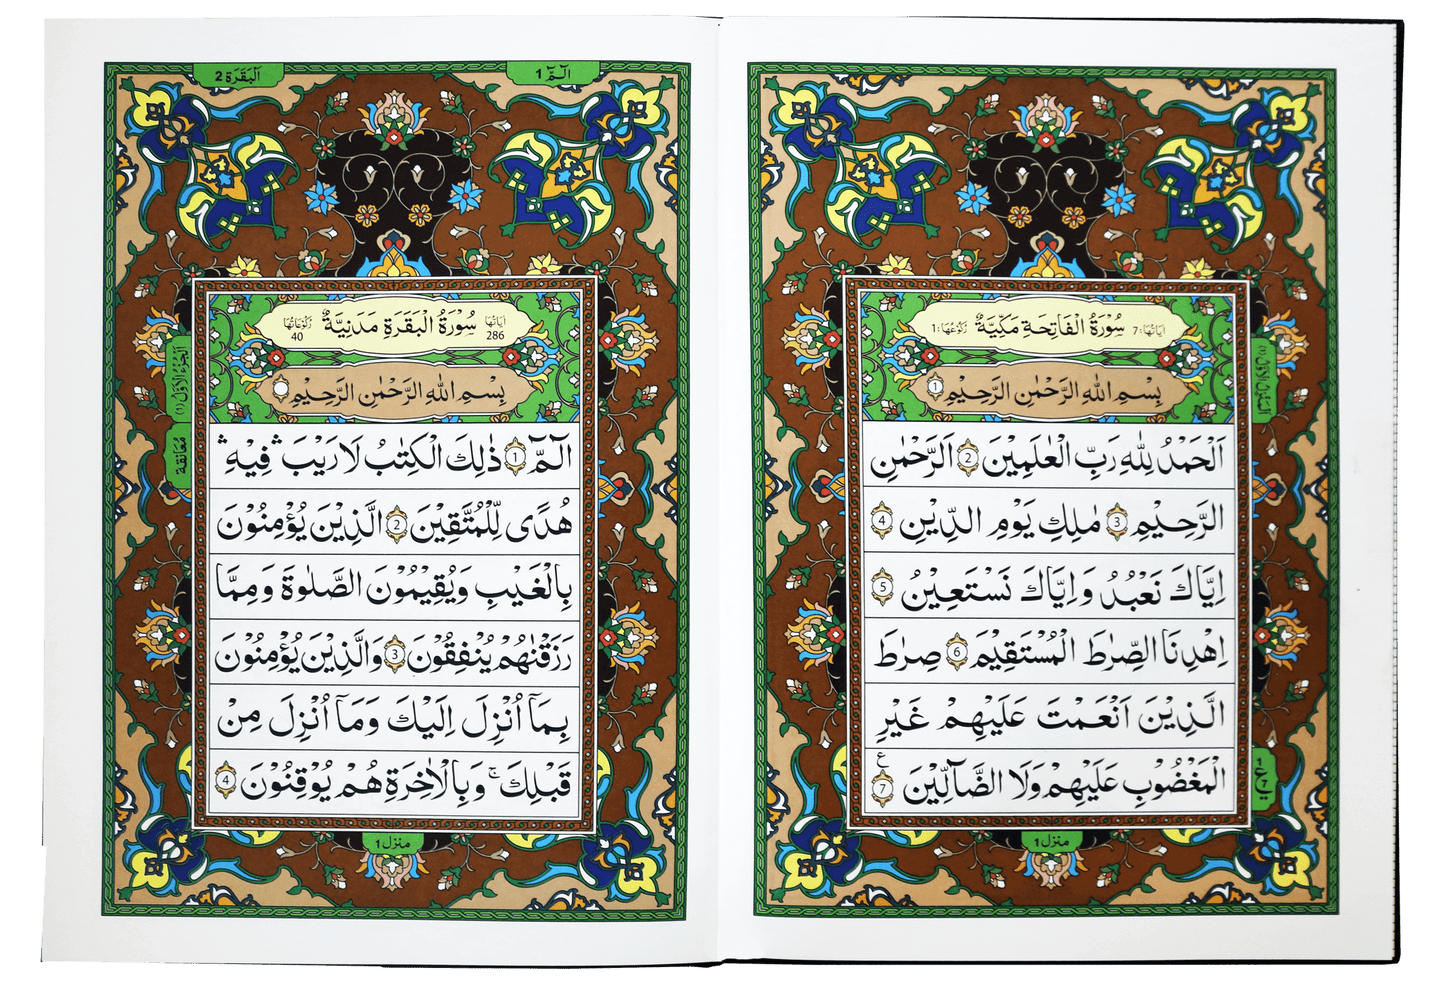 سُوْرَةُ الْفَاتِحَةِ مَكِّيَّةٌ
اٰيَاتُهَا: 7
رُكُوْعُهَا: 1
بِسْمِ اللّٰهِ الرَّحْمٰنِ الرَّحِيْمِ 1
اَلْحَمْدُ لِلّٰهِ رَبِّ الْعٰلَمِيْنَ 2 الرَّحْمٰنِ
الرَّحِيْمِ 3 مٰلِكِ يَوْمِ الدِّيْنِ 4
اِيَّاكَ نَعْبُدُ وَاِيَّاكَ نَسْتَعِيْنُ 5
اِهْدِنَا الصِّرَاطَ الْمُسْتَقِيْمَ 6 صِرَاطَ
الَّذِيْنَ اَنْعَمْتَ عَلَيْهِمْ غَيْرِ
الْمَغْضُوْبِ عَلَيْهِمْ وَلَا الضَّآلِّيْنَ 7
ع
منزل 1
الٓمّٓ 1
اَلْبَقَرَة 2
سُوْرَةُ الْبَقَرَةِ مَدَنِيَّةٌ
اٰيَاتُهَا 286
رُكُوْعَاتُهَا 40
بِسْمِ اللّٰهِ الرَّحْمٰنِ الرَّحِيْمِ
الٓمّٓ 1 ذٰلِكَ الْكِتٰبُ لَا رَيْبَ ۛ فِيْهِ ۛ
هُدًى لِّلْمُتَّقِيْنَ 2 الَّذِيْنَ يُؤْمِنُوْنَ
بِالْغَيْبِ وَيُقِيْمُوْنَ الصَّلٰوةَ وَمِمَّا
رَزَقْنٰهُمْ يُنْفِقُوْنَ 3 وَالَّذِيْنَ يُؤْمِنُوْنَ
بِمَآ اُنْزِلَ اِلَيْكَ وَمَآ اُنْزِلَ مِنْ
قَبْلِكَ ۚ وَبِالْاٰخِرَةِ هُمْ يُوْقِنُوْنَ 4
اَلْجُزْءُ الْاَوَّلُ (1)
مُعَانقة
منزل 1